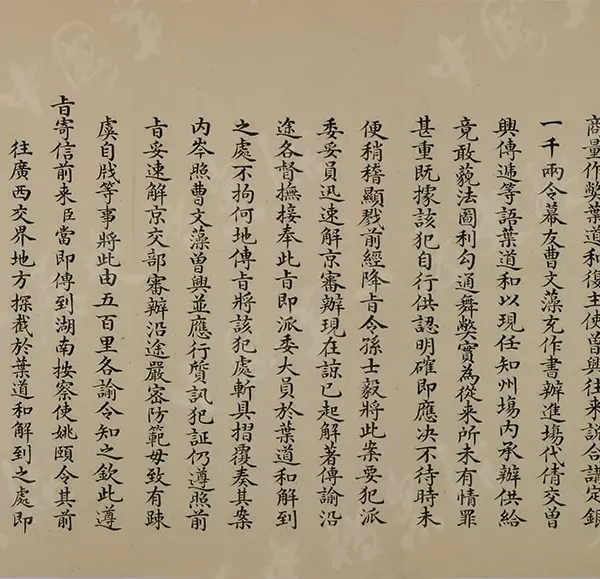 商量作弊葉道和復主使曾興往來訴合講定銀
一千兩令幕友曹文藻充作書辦進場代倩交曾
興傳遞等語葉道和以現任知州場內承辦供給
竟敢藐法圖利勾通舞弊實為從來所未有情罪
甚重既據該犯自行供認明確即應決不待時未
便稍稽顯戮前經降旨令孫士毅將此案要犯派
委妥員迅速解京審辦現在諒已起解著傳諭沿
途各督撫接奉此旨即派委大員於葉道和解到
之處不拘何地傳旨將該犯處斬具摺覆奏其案
內岑照曹文藻曾興並應行質訊犯証仍遵照前
旨妥速解京交部審辦沿途嚴密防範毋致有疎
虞自戕等事將此由五百里各諭令知之欽此遵
旨寄信前來臣當即傳到湖南按察使姚頤令其前
往廣西交界地方探截於葉道和解到之處即